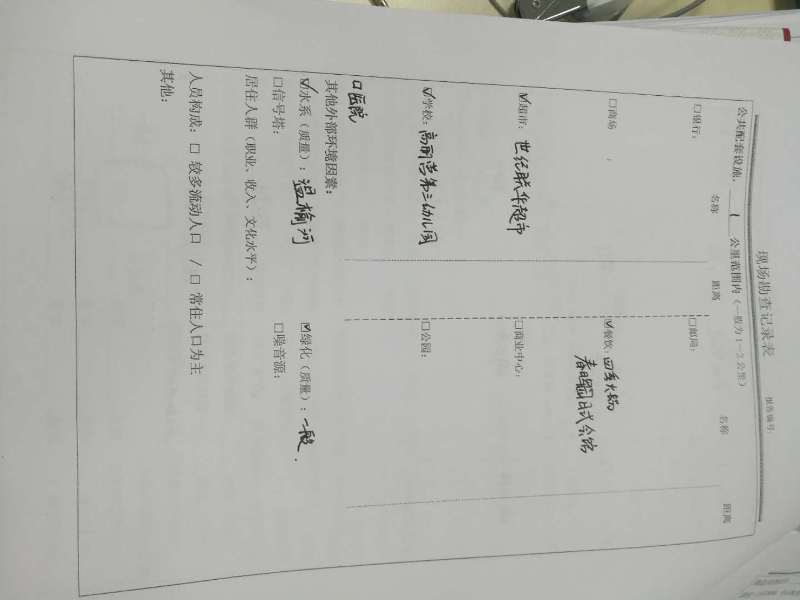 现场勘查记录表
报告编号:
公共配套设施, 1 公里范围内(一般为1-2公里)
名称 距离 名称 距离
□银行: □邮局:
□商场 ☑餐饮: 四季火锅
日式会馆
☑超市: 世纪联华超市 □商业中心:
☑学校: 高丽营第三幼儿园 □公园:
□医院
其他外部环境因素:
☑水系(质量): 温榆河 ☑绿化(质量): 一般.
□信号塔: □噪音源:
居住人群(职业、收入、文化水平):
人员构成: □ 较多流动人口 / □ 常住人口为主
其他: